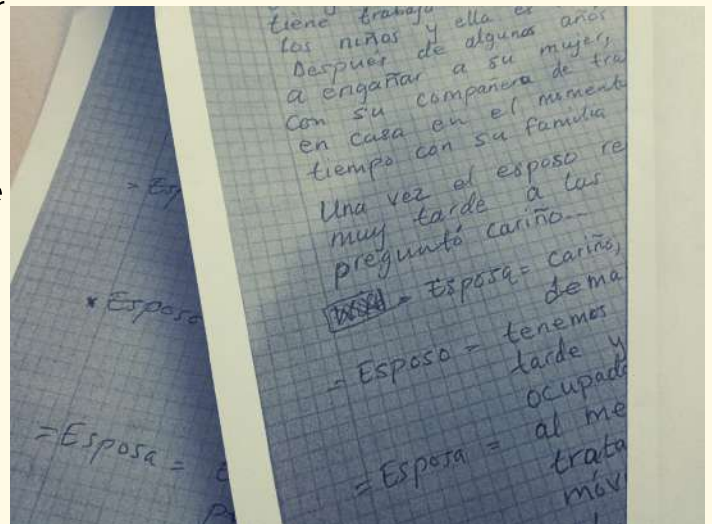 tiene trabajo
los niños y ella es
Después de algunos años
a engañar a su mujer,
con su compañera de tra
en casa en el moment
tiempo con su familia
Una vez el esposo re
muy tarde a las
preguntó cariño...
= Esposa = cariño,
dema
= Esposo = tenemos
tarde y
ocupado
= Esposa = al me
trata
móv
= Esp
* Esposo
= Esposa =